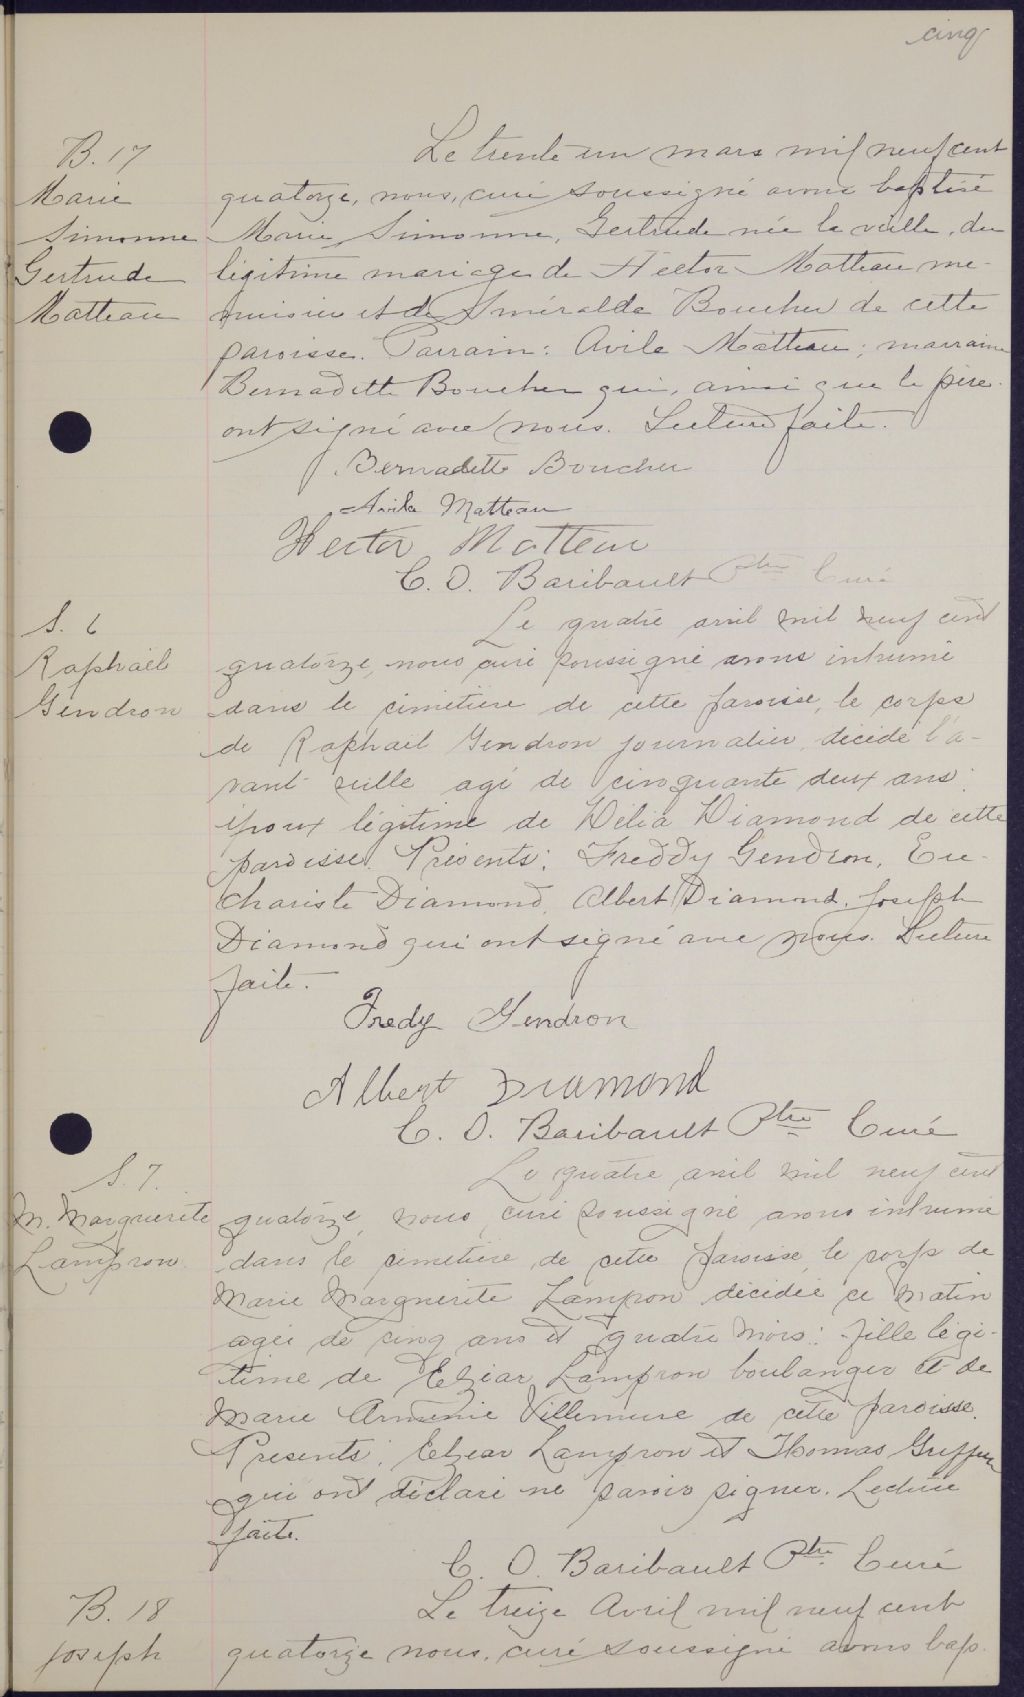 cinq
B. 17
Marie
Simonne
Gertrude
Matteau
Le trente un mars mil neuf cent
quatorze, nous, curé soussigné avons baptisé
Marie, Simonne, Gertrude née la veille, du
légitime mariage de Hector Matteau me-
nuisier et de Sméralda Boucher de cette
paroisse. Parrain: Avila Matteau; marraine
Bernadette Boucher qui, ainsi que le père
ont signé avec nous. Lecture faite.
Bernadette Boucher
Avila Matteau
Hector Matteau
C. O. Baribault Ptre Curé
S. 6
Raphaël
Gendron
Le quatre avril mil neuf cent
quatorze, nous curé soussigné avons inhumé
dans le cimetière de cette paroisse, le corps
de Raphaël Gendron journalier, décédé l'a-
vant veille agé de cinquante deux ans
époux légitime de Délia Diamond de cette
paroisse. Présents: Freddy Gendron, Eu-
chariste Diamond, Albert Diamond, Joseph
Diamond qui ont signé avec nous. Lecture
faite.
Fredy Gendron
Albert Diamond
C. O. Baribault Ptre Curé
S. 7.
M. Marguerite
Lampron
Le quatre avril mil neuf cent
quatorze, nous, curé soussigné avons inhumé
dans le cimetière de cette paroisse, le corps de
Marie Marguerite Lampron décédée ce matin
agée de cinq ans et quatre mois: fille légi-
time de Elzéar Lampron boulanger et de
Marie Arménie Villemure de cette paroisse.
Présents: Elzéar Lampron et Thomas
qui ont déclaré ne savoir signer. Lecture
faite.
C. O. Baribault Ptre Curé
B. 18
Joseph
Le treize Avril mil neuf cent
quatorze nous, curé soussigné avons bap-